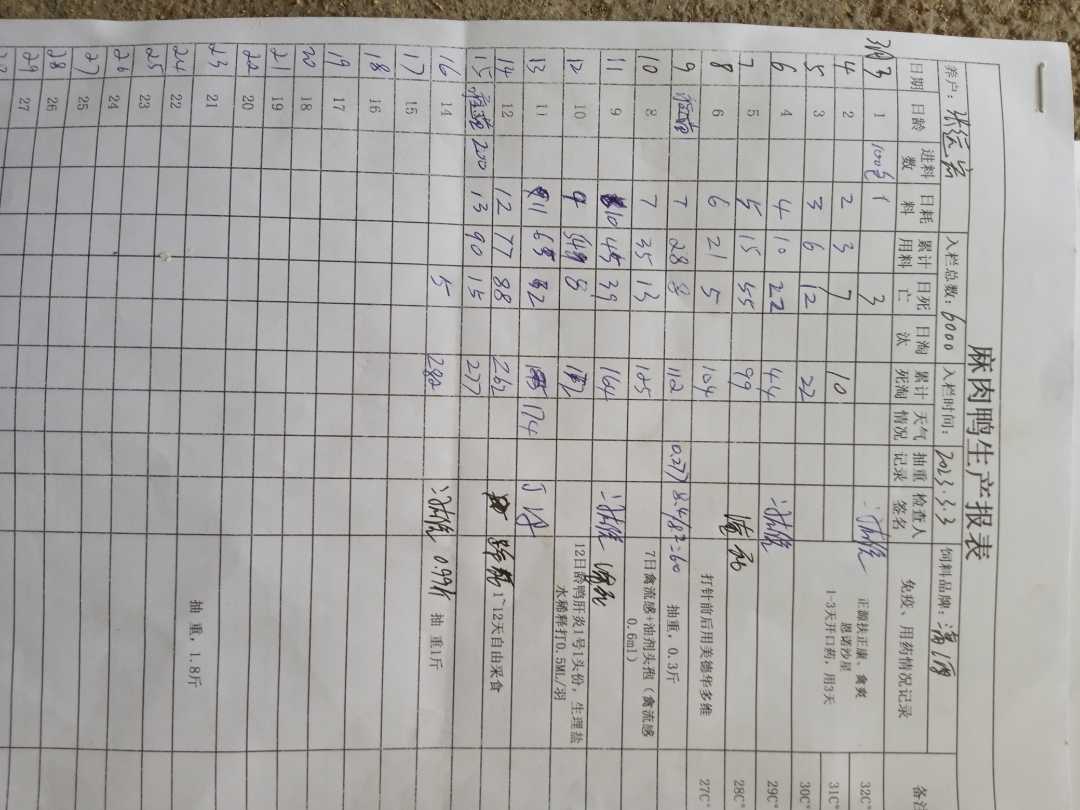 麻肉鸭生产报表
养户: 张运宏 入栏总数: 6000 入栏时间: 2023.3.3 饲料品牌:
日期 日龄 进料数 日耗料 累计用料 日死亡 日淘汰 累计死淘 天气情况 抽重记录 检查人签名 免疫、用药情况记录 备注
3月3 1 100包 1 3 正源扶正康、禽爽 32C°
4 2 2 3 7 10 恩诺沙星 31C°
5 3 3 6 12 22 1-3天开口药,用3天 30C°
6 4 4 10 22 44 29C°
7 5 5 15 55 99 28C°
8 6 6 21 5 104 打针前后用美德华多维 27C°
9 疫苗 7 28 8 112 0.277 8.4/82=60 抽重,0.3斤
10 8 7 35 13 125 7日禽流感+油剂头孢(禽流感0.6ml)
11 9 10 45 39 164
12 10 9 8 172 12日龄鸭肝炎1号1头份,生理盐水稀释打0.5ML/羽
13 11 11 65 2 174
14 12 12 77 88 262 1~12天自由采食
15 疫苗 200 13 90 15 277
16 14 5 282 0.99斤 抽重1斤
17 15
18 16
19 17
20 18
21 19
22 20
23 21 抽重,1.8斤
24 22
25 23
26 24
27 25
28 26
29 27